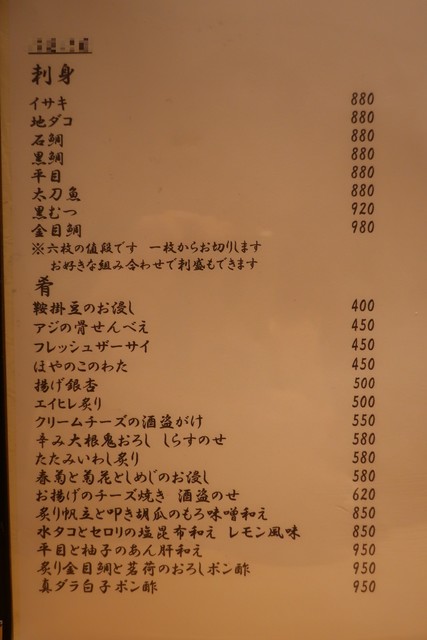 刺身
イサキ 880
地ダコ 880
石鯛 880
黒鯛 880
平目 880
太刀魚 880
黒むつ 920
金目鯛 980
※六枚の値段です 一枚からお切りします
お好きな組み合わせで刺盛もできます
肴
鞍掛豆のお浸し 400
アジの骨せんべえ 450
フレッシュザーサイ 450
ほやのこのわた 450
揚げ銀杏 500
エイヒレ炙り 500
クリームチーズの酒盗がけ 550
辛み大根鬼おろし しらすのせ 580
たたみいわし炙り 580
春菊と菊花としめじのお浸し 580
お揚げのチーズ焼き 酒盗のせ 620
炙り帆立と叩き胡瓜のもろ味噌和え 850
水タコとセロリの塩昆布和え レモン風味 850
平目と柚子のあん肝和え 950
炙り金目鯛と茗荷のおろしポン酢 950
真ダラ白子ポン酢 950